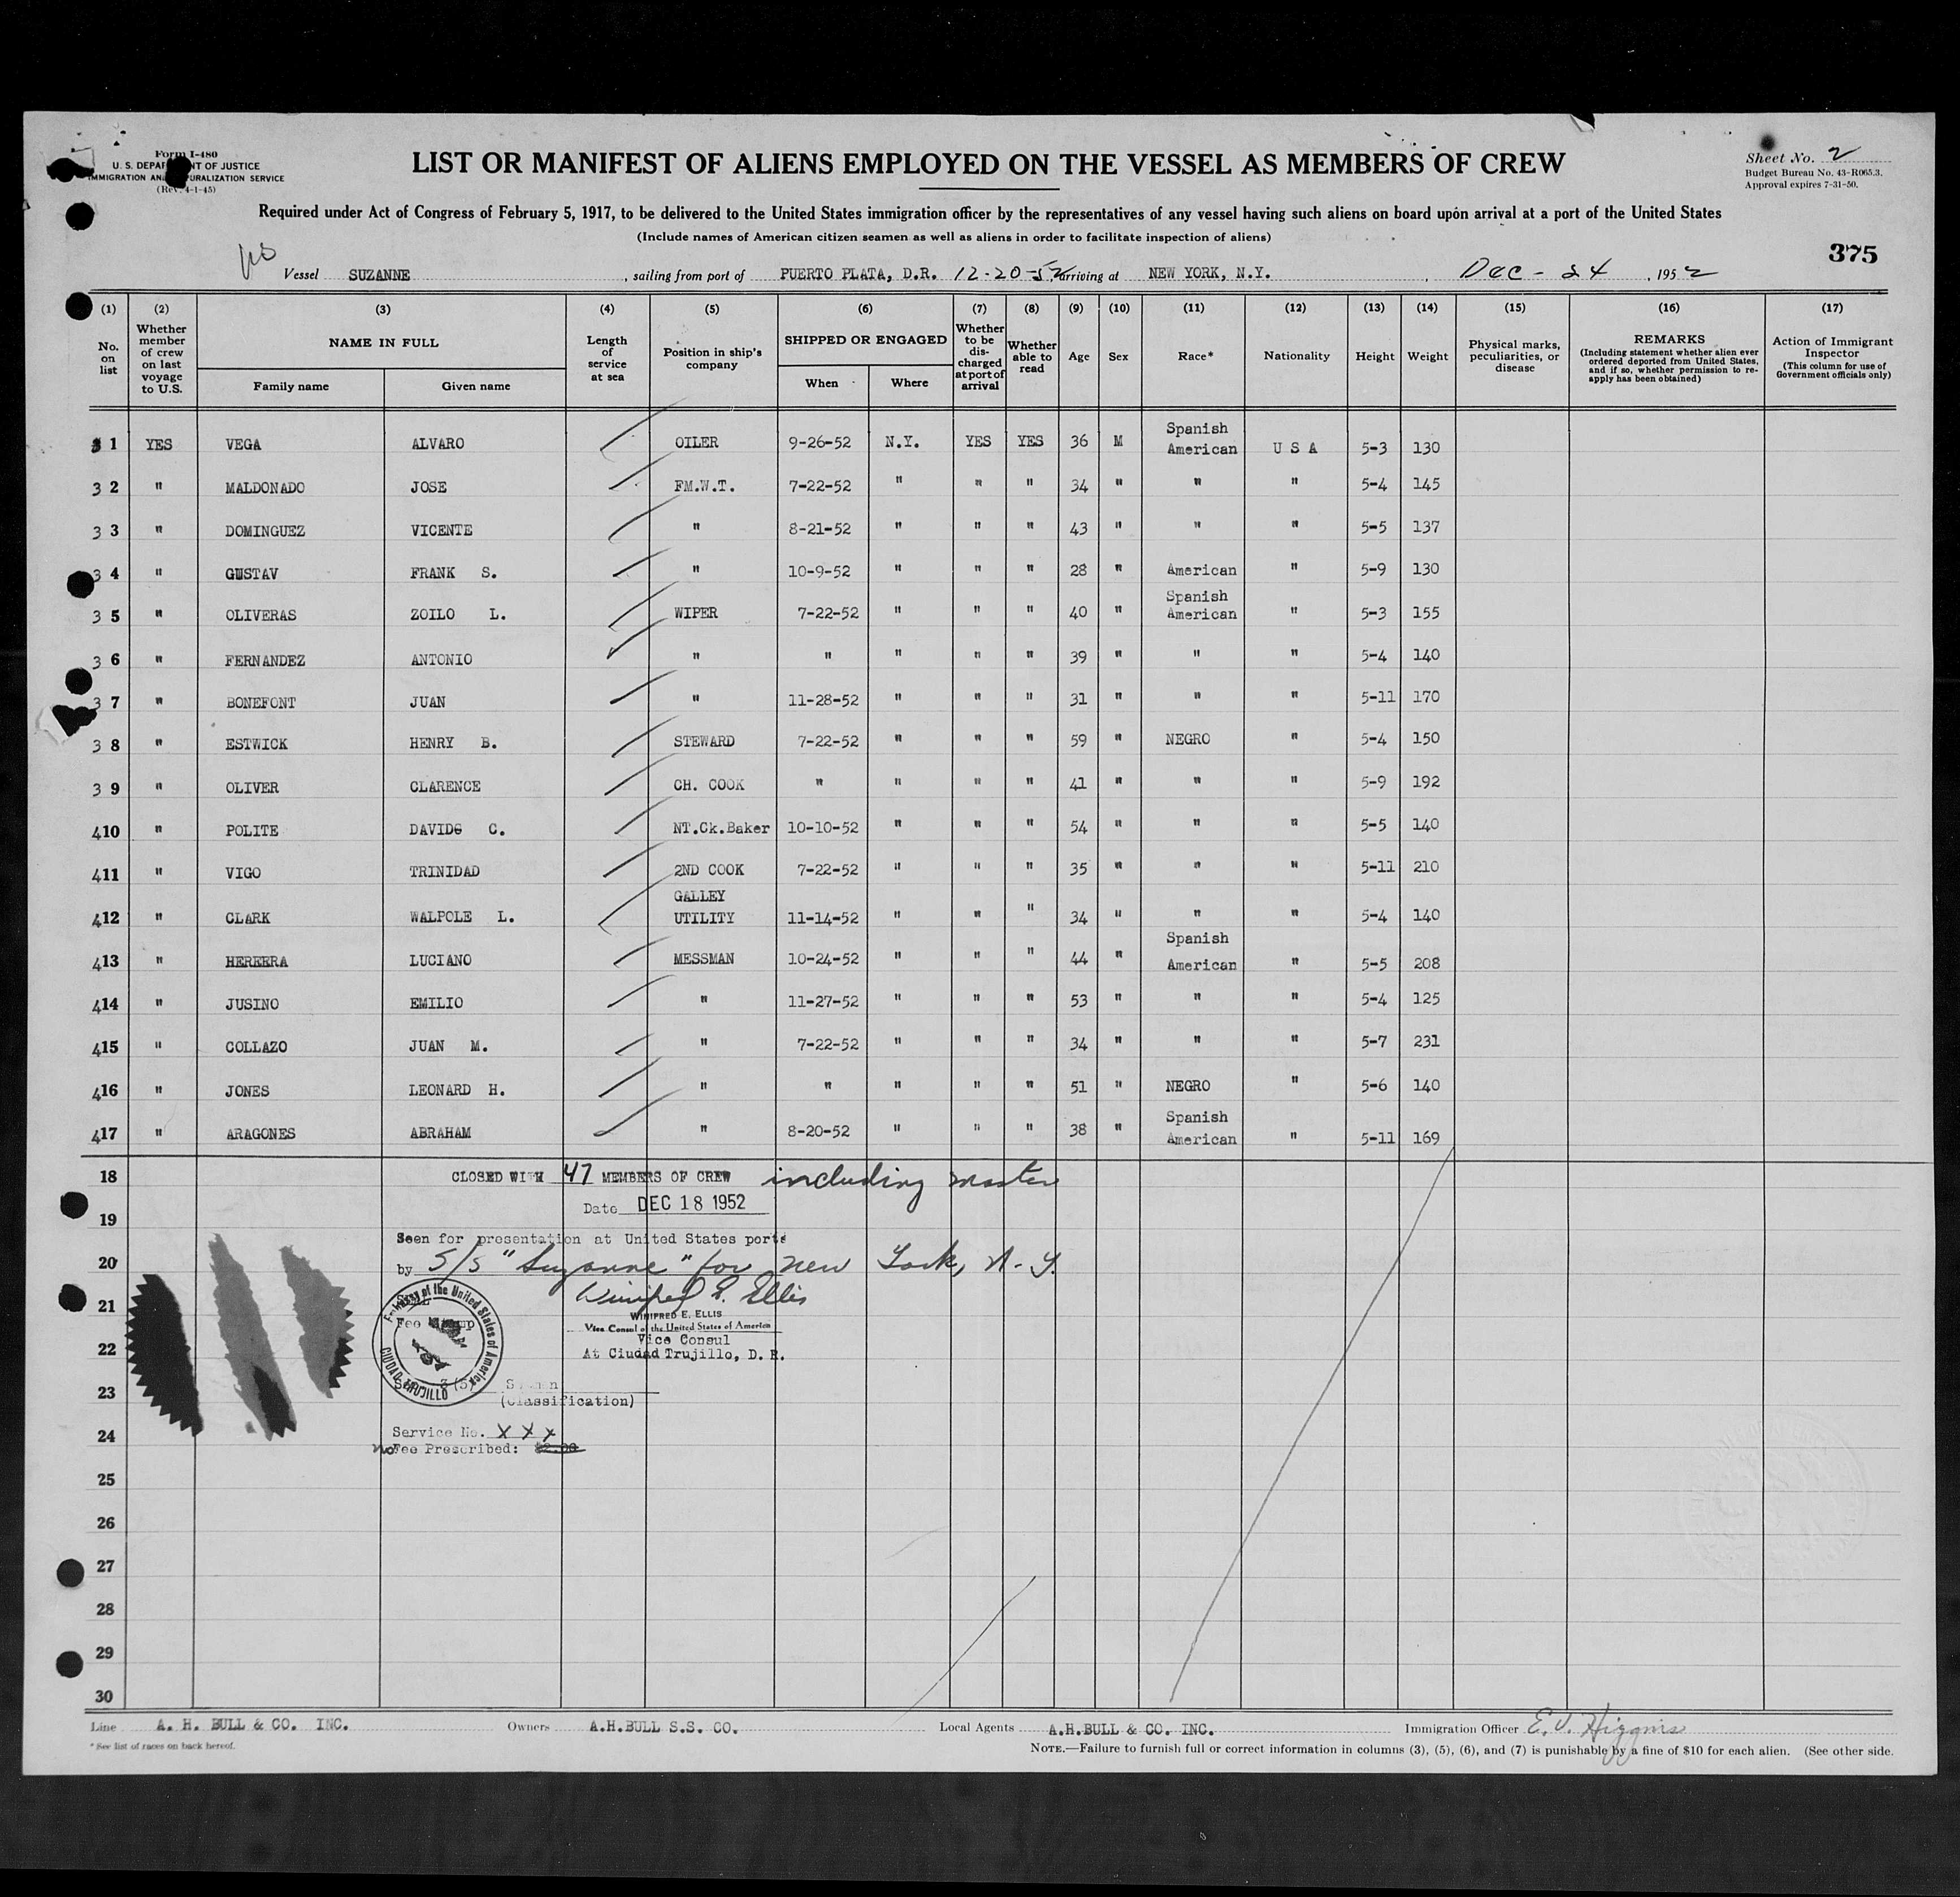 Form I-480
U. S. DEPARTMENT OF JUSTICE
IMMIGRATION AND NATURALIZATION SERVICE
(Rev. 4-1-45)
LIST OR MANIFEST OF ALIENS EMPLOYED ON THE VESSEL AS MEMBERS OF CREW
Sheet No. 2
Budget Bureau No. 43-R065.3.
Approval expires 7-31-50.
Required under Act of Congress of February 5, 1917, to be delivered to the United States immigration officer by the representatives of any vessel having such aliens on board upon arrival at a port of the United States
(Include names of American citizen seamen as well as aliens in order to facilitate inspection of aliens)
375
Vessel SUZANNE, sailing from port of PUERTO PLATA, D.R. 12-20-52, arriving at NEW YORK, N.Y., Dec - 24, 1952
(1) (2) (3) (4) (5) (6) (7) (8) (9) (10) (11) (12) (13) (14) (15) (16) (17)
No. on list
Whether member of crew on last voyage to U.S.
NAME IN FULL
Family name
Given name
Length of service at sea
Position in ship's company
SHIPPED OR ENGAGED
When
Where
Whether to be discharged at port of arrival
Whether able to read
Age
Sex
Race*
Nationality
Height
Weight
Physical marks, peculiarities, or disease
REMARKS
(Including statement whether alien ever ordered deported from United States, and if so, whether permission to reapply has been obtained)
Action of Immigrant Inspector
(This column for use of Government officials only)
3 1 YES VEGA ALVARO OILER 9-26-52 N.Y. YES YES 36 M Spanish American U S A 5-3 130
3 2 " MALDONADO JOSE FM.W.T. 7-22-52 " " " 34 " " " 5-4 145
3 3 " DOMINGUEZ VICENTE " 8-21-52 " " " 43 " " " 5-5 137
3 4 " GUSTAV FRANK S. " 10-9-52 " " " 28 " American " 5-9 130
3 5 " OLIVERAS ZOILO L. WIPER 7-22-52 " " " 40 " Spanish American " 5-3 155
3 6 " FERNANDEZ ANTONIO " " " " " 39 " " " 5-4 140
3 7 " BONEFONT JUAN " 11-28-52 " " " 31 " " " 5-11 170
3 8 " ESTWICK HENRY B. STEWARD 7-22-52 " " " 59 " NEGRO " 5-4 150
3 9 " OLIVER CLARENCE CH. COOK " " " " 41 " " " 5-9 192
410 " POLITE DAVIDG C. NT.Ck.Baker 10-10-52 " " " 54 " " " 5-5 140
411 " VIGO TRINIDAD 2ND COOK 7-22-52 " " " 35 " " " 5-11 210
412 " CLARK WALPOLE L. GALLEY UTILITY 11-14-52 " " " 34 " " " 5-4 140
413 " HERRERA LUCIANO MESSMAN 10-24-52 " " " 44 " Spanish American " 5-5 208
414 " JUSINO EMILIO " 11-27-52 " " " 53 " " " 5-4 125
415 " COLLAZO JUAN M. " 7-22-52 " " " 34 " " " 5-7 231
416 " JONES LEONARD H. " " " " " 51 " NEGRO " 5-6 140
417 " ARAGONES ABRAHAM " 8-20-52 " " " 38 " Spanish American " 5-11 169
18
CLOSED WITH 47 MEMBERS OF CREW including master
Date DEC 18 1952
19
Seen for presentation at United States ports
20
by S/S "Suzanne" for New York, N.Y.
21
Winifred E. Ellis
WINIFRED E. ELLIS
Vice Consul of the United States of America
Vice Consul
At Ciudad Trujillo, D. R.
Embassy of the United States of America
CIUDAD TRUJILLO
Fee Stamp
22
23
(Classification)
24
Service No. X X X
no Fee Prescribed: $2.00
25
26
27
28
29
30
Line A. H. BULL & CO. INC. Owners A.H.BULL S.S. CO. Local Agents A.H.BULL & CO. INC. Immigration Officer E. J. Higgins
* See list of races on back hereof.
NOTE.—Failure to furnish full or correct information in columns (3), (5), (6), and (7) is punishable by a fine of $10 for each alien. (See other side.